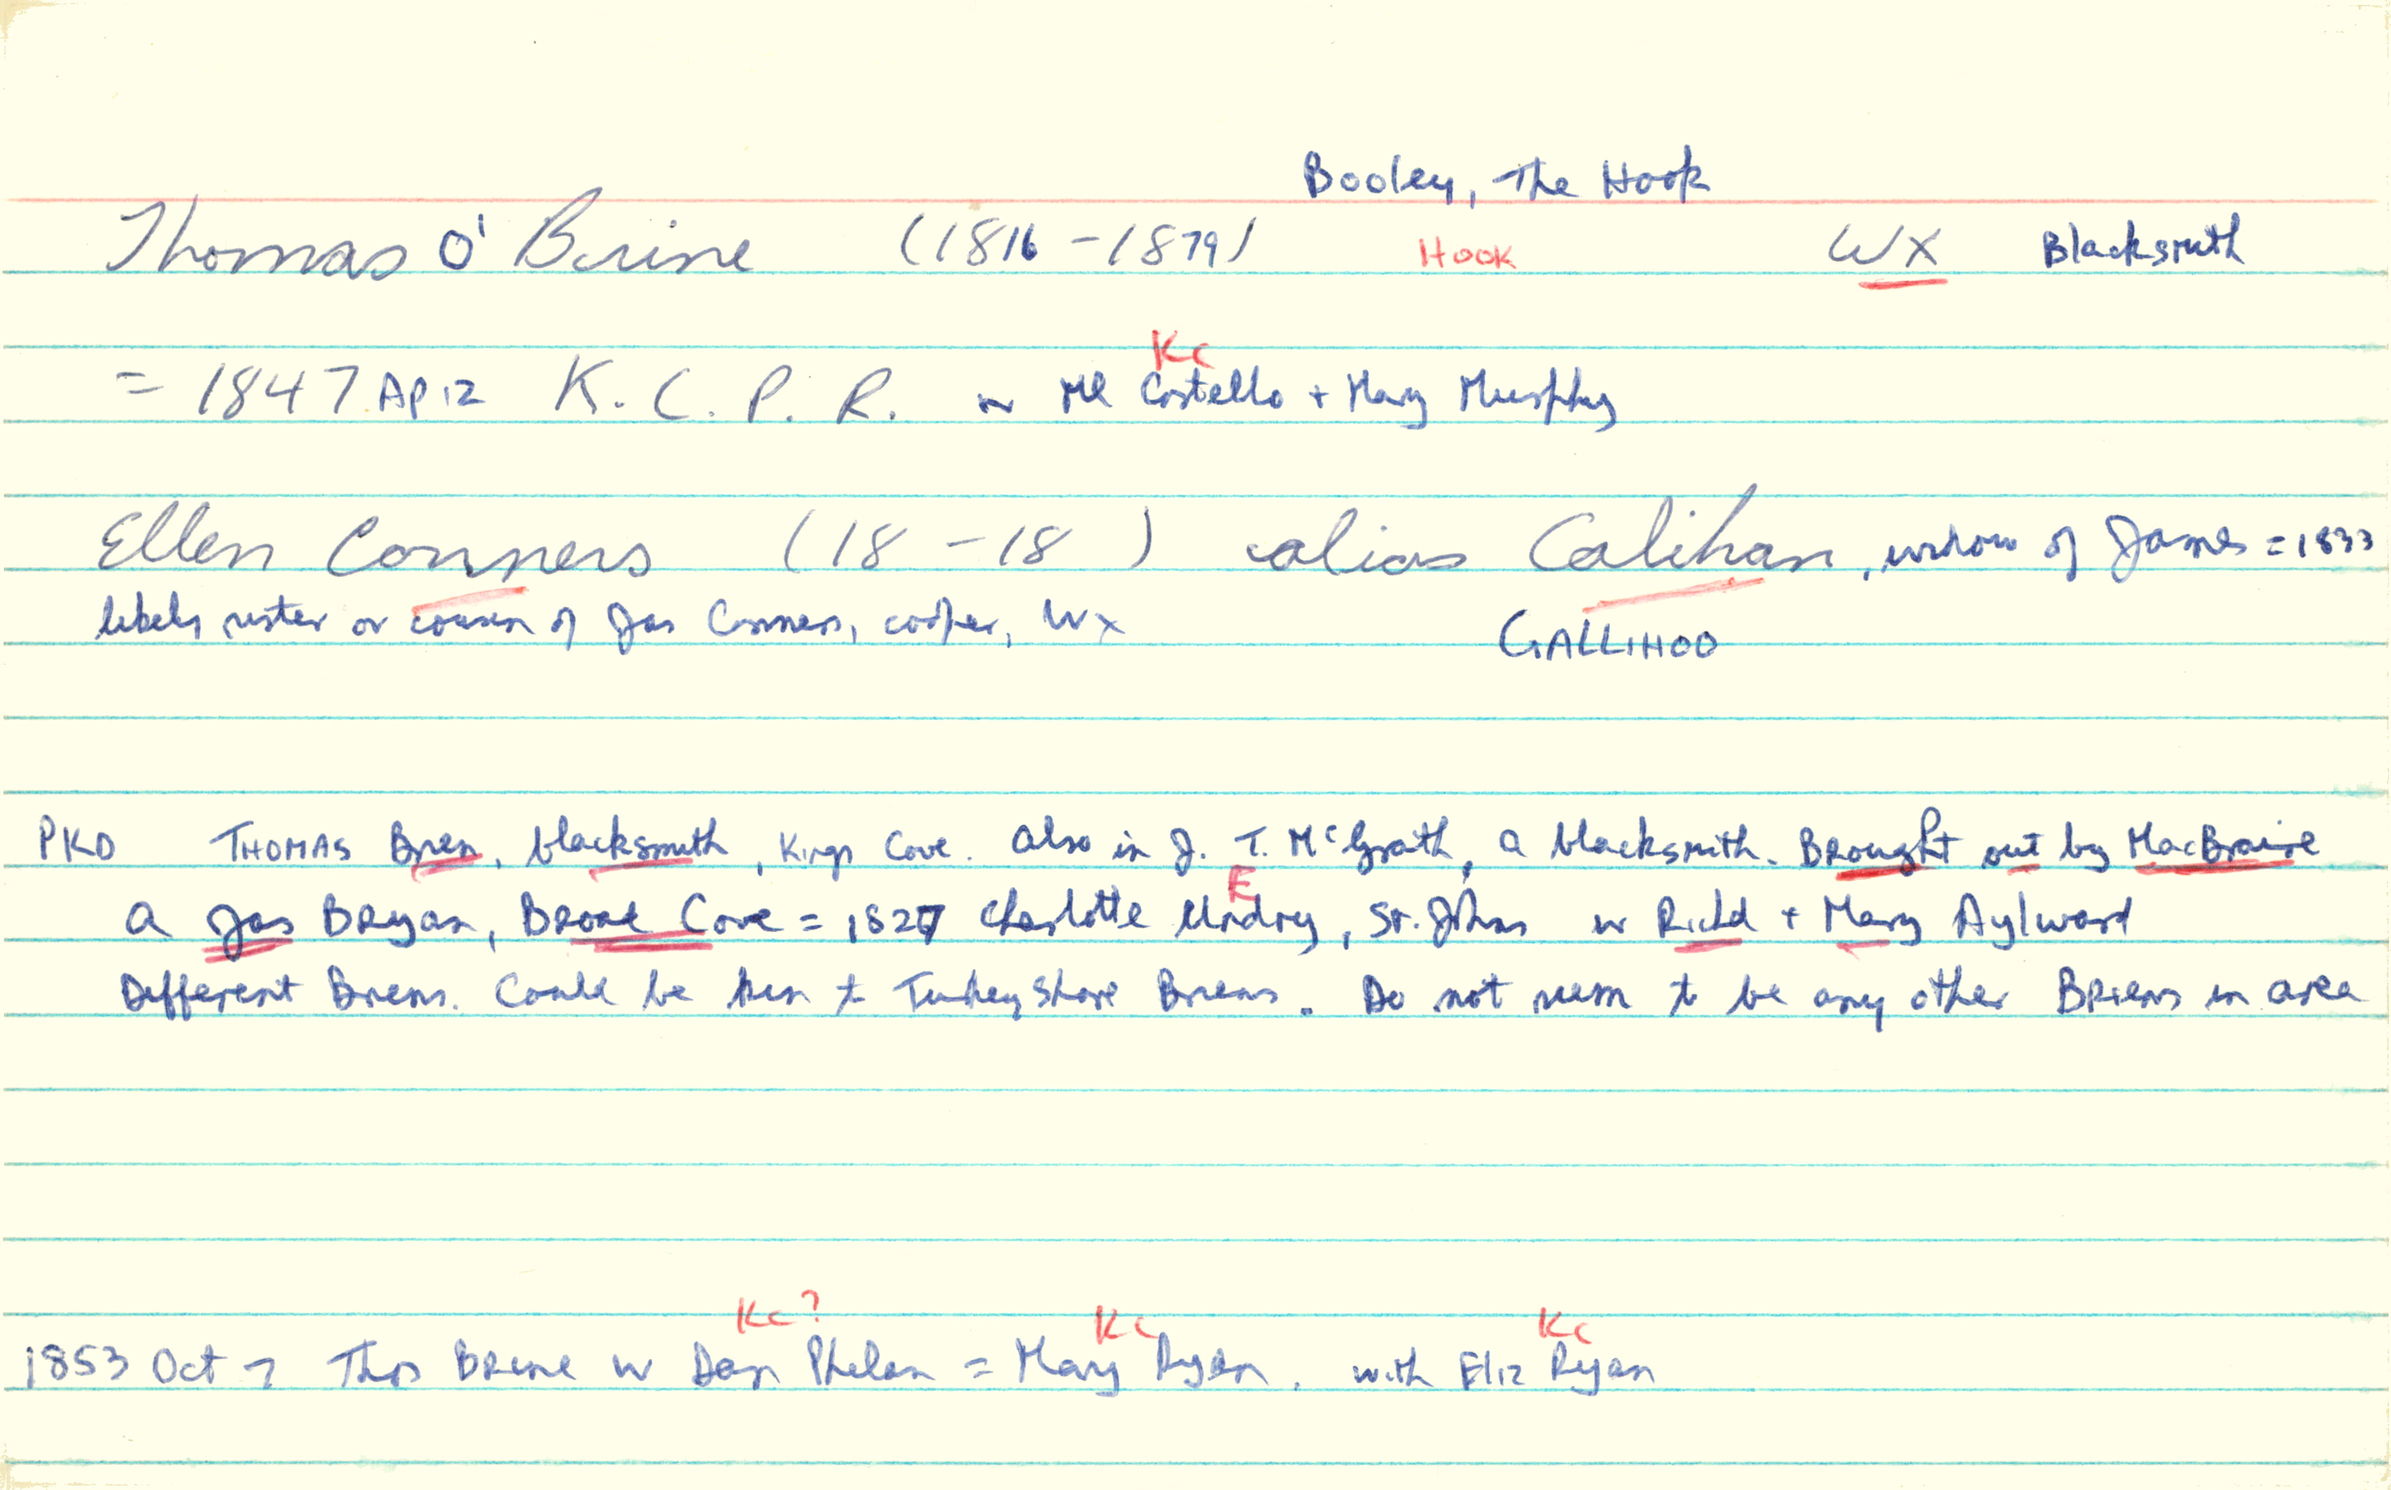 Booley, The Hook
Thomas O' Brine (1816 - 1879) Hook WX Blacksmith
Kc
= 1847 Ap 12 K. C. P. R. w Ml Costello + Mary Murphy
Ellen Conners (18 - 18 ) alias Calihan, widow of James = 1833
likely sister or cousin of Jas Conners, cooper, Wx GALLIHOO
PKD THOMAS Brien, blacksmith, Kings Cove. Also in J. T. McGrath, a blacksmith. Brought out by MacBraire
E
a Jas Bryan, Broad Cove = 1827 Charlotte St. Johns w Richd + Mary Aylward
Different Briens. Could be kin to Turkey Shore Briens. Do not seem to be any other Briens in area
Kc? Kc Kc
1853 Oct 7 Thos Brine w Dan Phelan = Mary Ryan. with Eliz Ryan